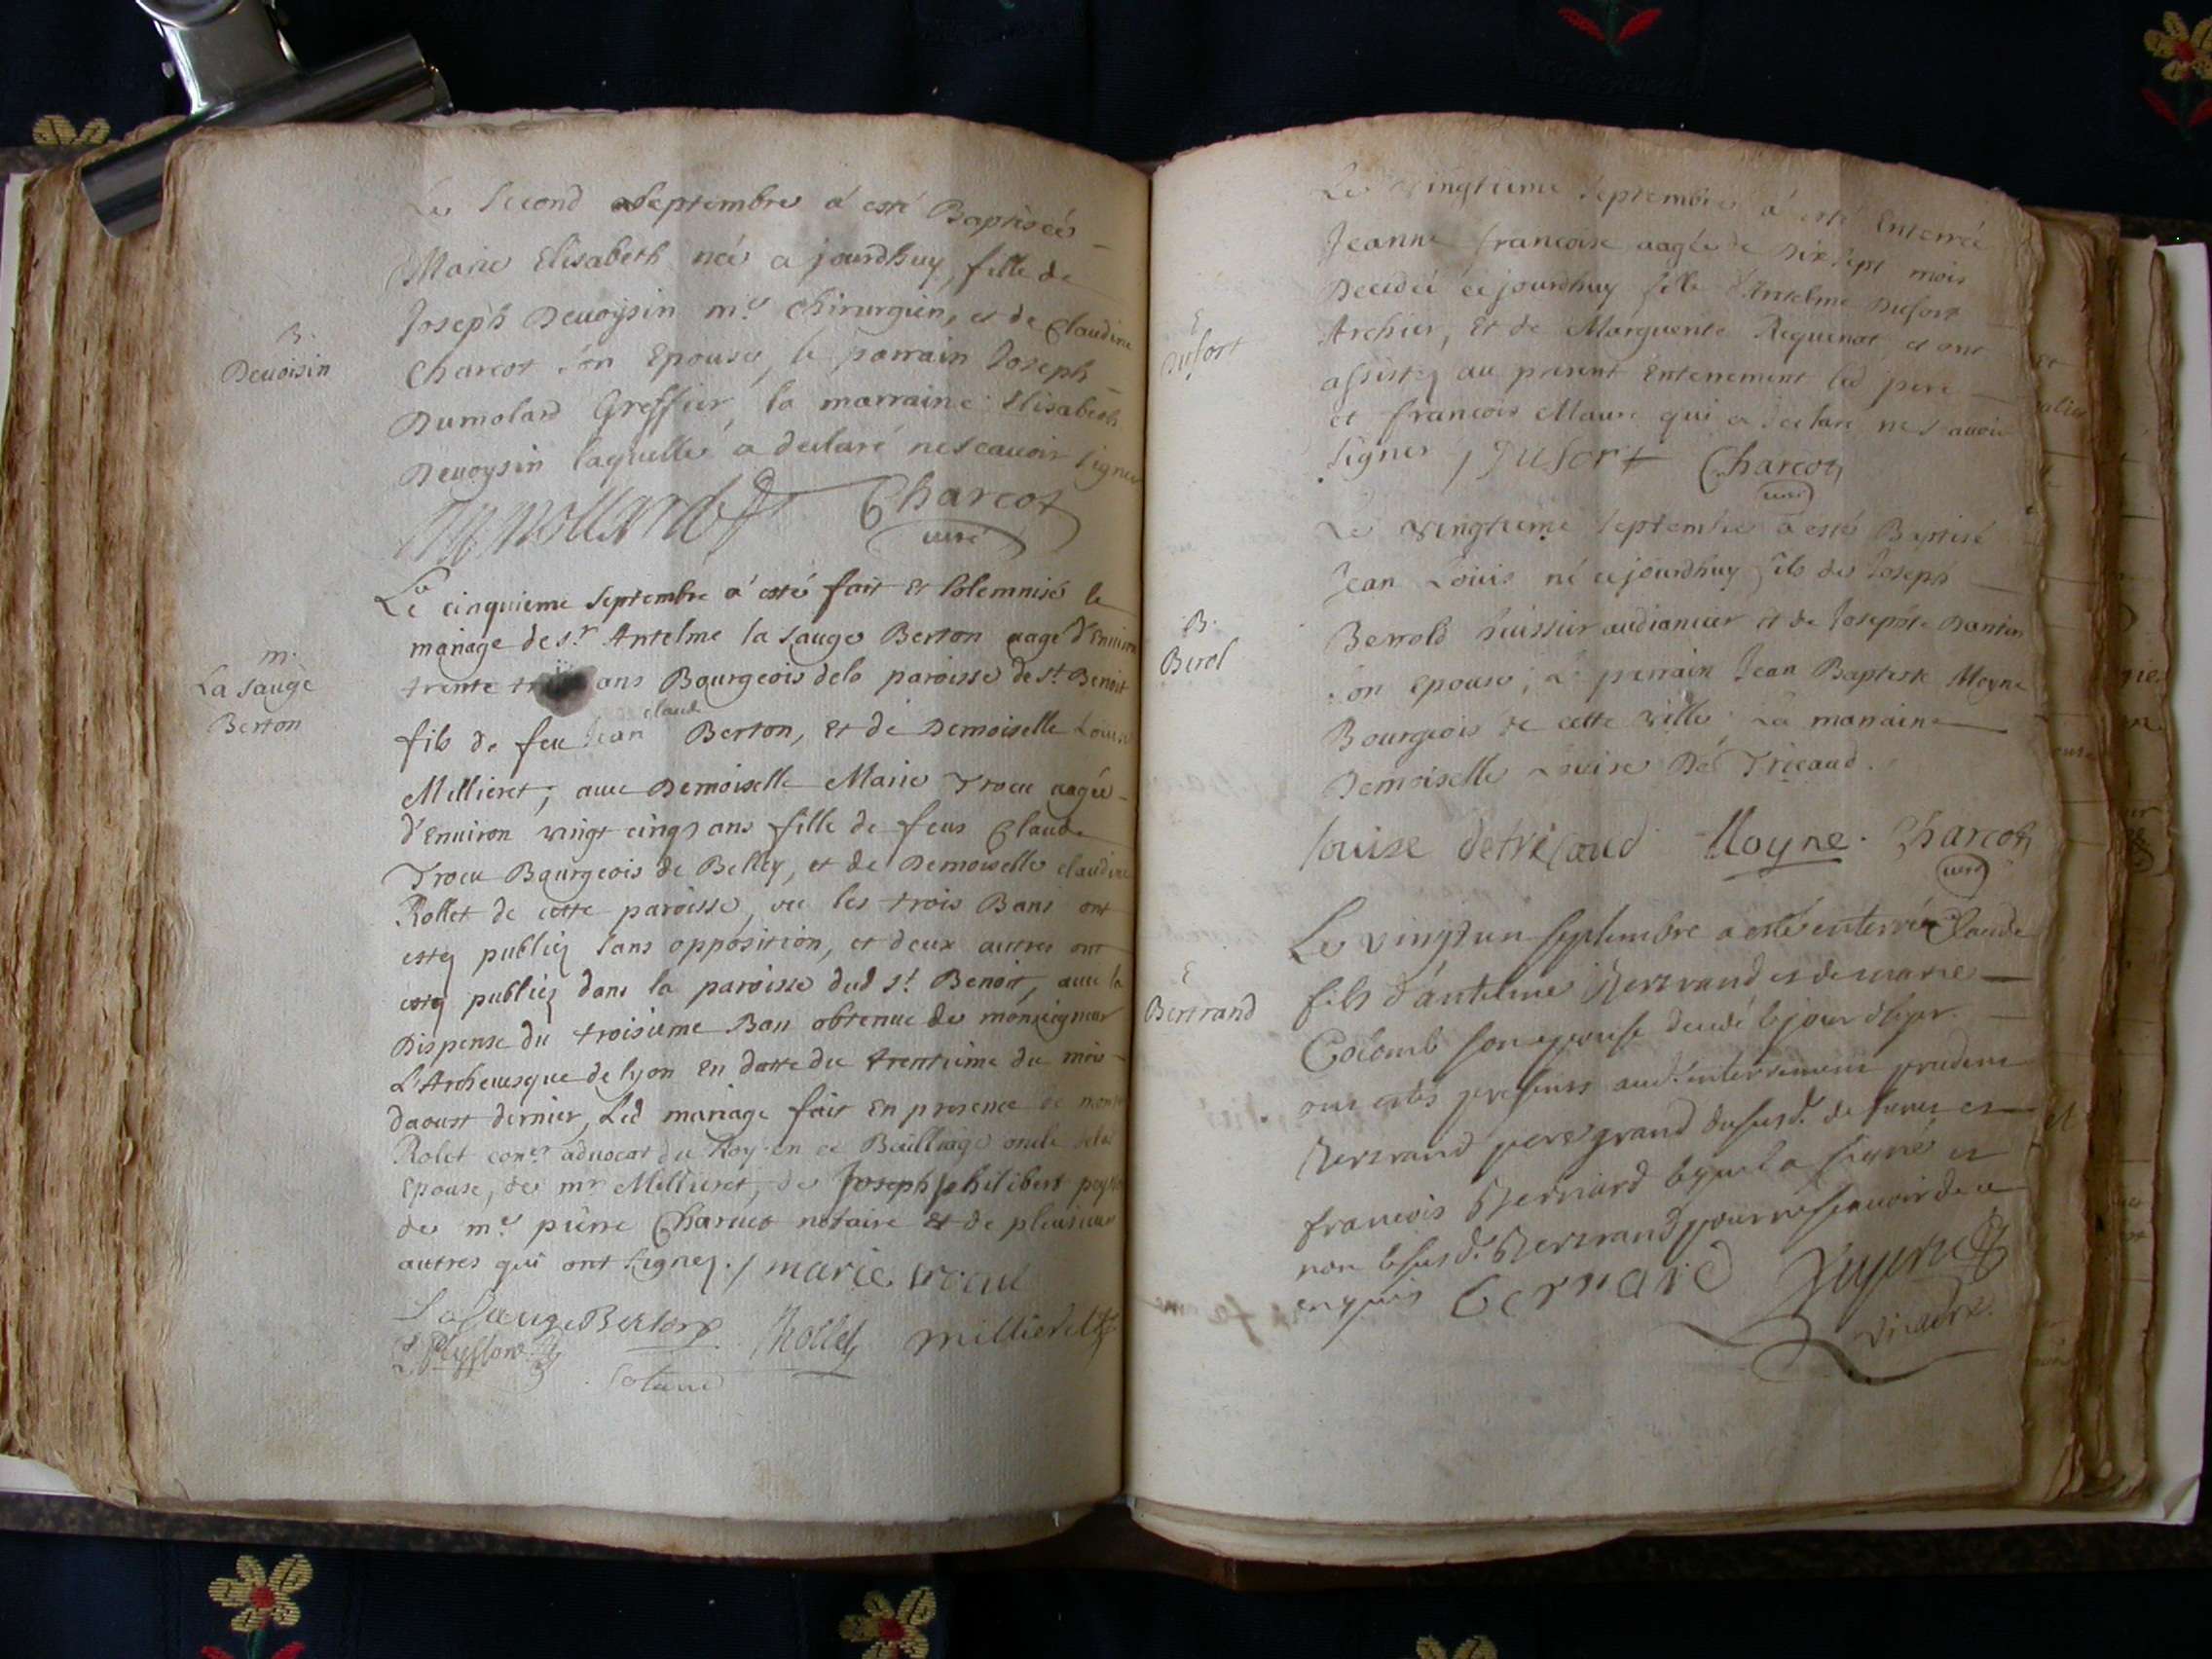 Le second Septembre a esté Baptisée
Marie Elisabeth née a jourdhuy, fille de
Joseph Devoysin m.e Chirurgien, et de Claudine
Charcot son Epouse, le parrain Joseph
Dumolard Greffier, la marraine Elisabeth
Devoysin laquelle a declaré nescavoir signer
B.
Devoisin
Charcot
curé
Le cinquieme Septembre a esté fait et solemnisé le
mariage de s.r Antelme la sauge Berton aagé d'Environ
trente ans Bourgeois dela paroisse de st. Benoit
fils de feu Jean claude Berton, et de Demoiselle Louise
Millieret, avec Demoiselle Marie Trocu aagée
d'Environ vingt cinq ans fille de feus Claude
Trocu Bourgeois de Belley, et de Demoiselle claudine
Rollet de cette paroisse, vu les trois Bans ont
estez publiez sans opposition, et deux autres ont
estez publiez dans la paroisse dud st. Benoit, avec la
Dispense du troisieme Ban obtenue de monseigneur
L'Archevesque de lyon En datte du trentieme du mois
daoust dernier, Led mariage fait En presence de
Rolet con.er advocat du Roy en ce Bailliage oncle
Epouse, de mr Millieret, de Joseph philibert
de m.e pierre Charcot notaire et de plusieurs
autres qui ont signez./ marie trocu
m.
La sauge
Berton
La sauge Berton Rollet Millieret
Le vingtieme Septembre a esté Enterrée
Jeanne francoise aagée de Dix sept mois
Decedée cejourdhuy fille d'Antelme Dufort
Archier, Et de Marguerite Requenot et ont
assistez au present Enterrement led pere
et francois Maure qui a declaré ne scavoir
signer / Dufort Charcot
curé
E
Dufort
Le vingtieme Septembre a esté Baptisé
Jean Louis né cejourdhuy fils de Joseph
Berrold huissier audiancier et de Josephte Dantin
son Epouse, le parrain Jean Baptiste Moyne
Bourgeois de cette ville, La marraine
Demoiselle Louise De Tricaud.
B.
Berol
louise detricaud Moyne. Charcot
curé
Le vingt un septembre a esté enterré Claude
fils d'antelme Bertrand et de marie
Colomb son epouse decedé le jour d'hyer.
ont estés presents aud. enterrement
Bertrand pere grand dususd. et
francois Bernard lequel a signé et
non lesusd. Bertrand pour ne scavoir de ce
enquis bernard
vicaire.
E
Bertrand